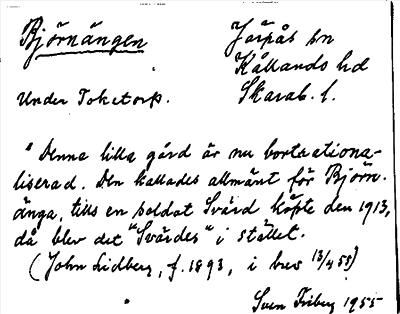 Björnängen
Järpås sn
Kållands hd
Skarab. l.
Under Toketorp.
"Denna lilla gård är nu bortrationa-
liserad. Den kallades allmänt för Björn-
änga, tills en soldat Svärd köpte den 1913,
då blev det "Svärdes" i stället.
(John Lidberg, f. 1893, i brev 13/4 55)
Sven Friberg 1955